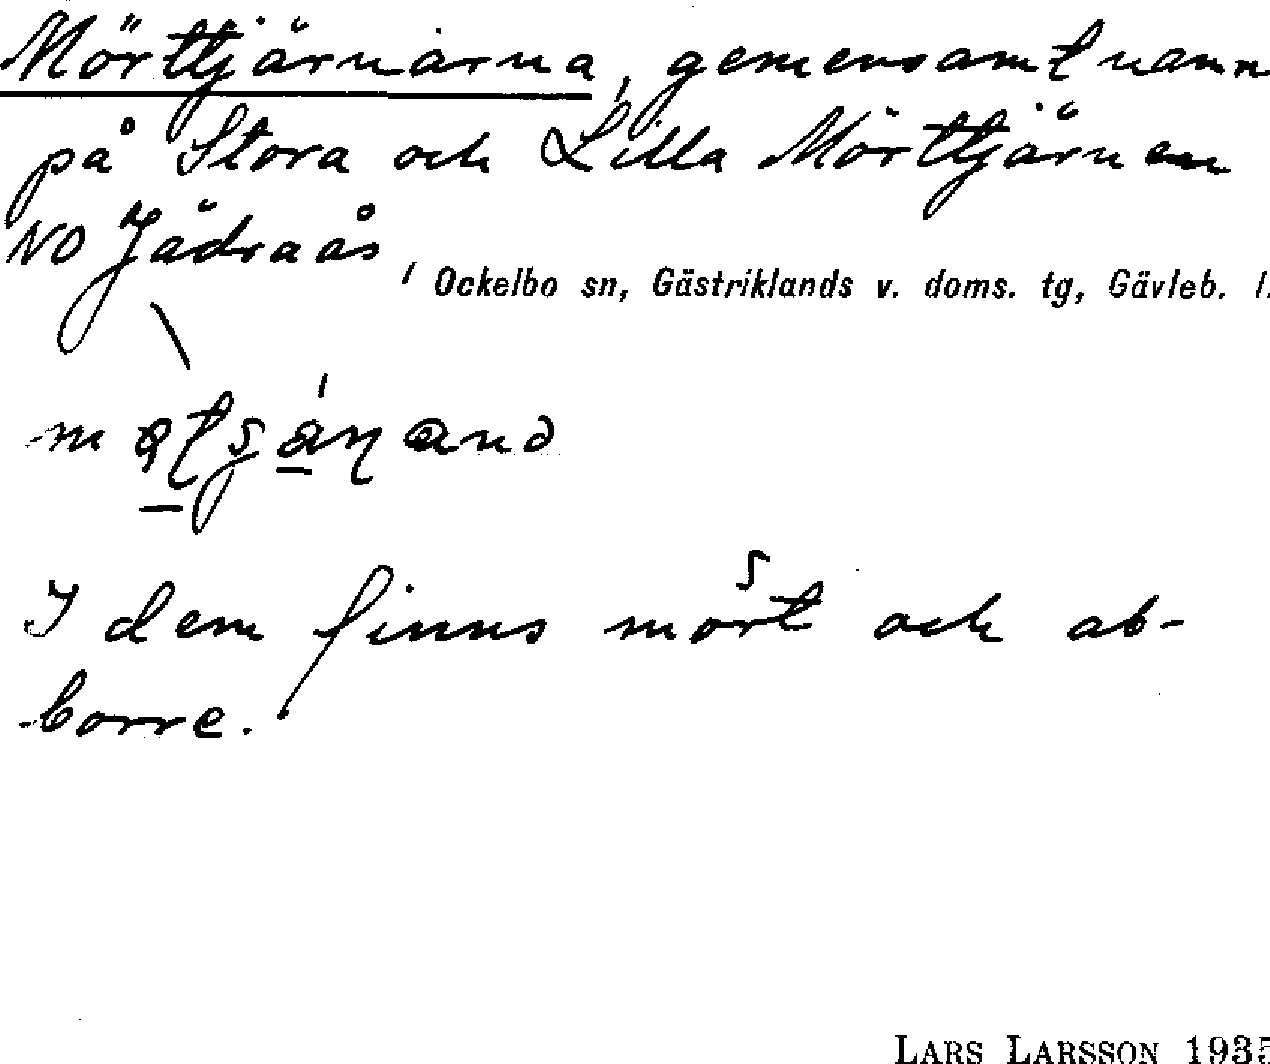 Mörttjärnarna, gemensamt namn
på Stora och Lilla Mörttjärnen
NO Jädraås, Ockelbo sn, Gästriklands v. doms. tg, Gävleb. l.
I dem finns mört och ab-
borre.
LARS LARSSON 1935